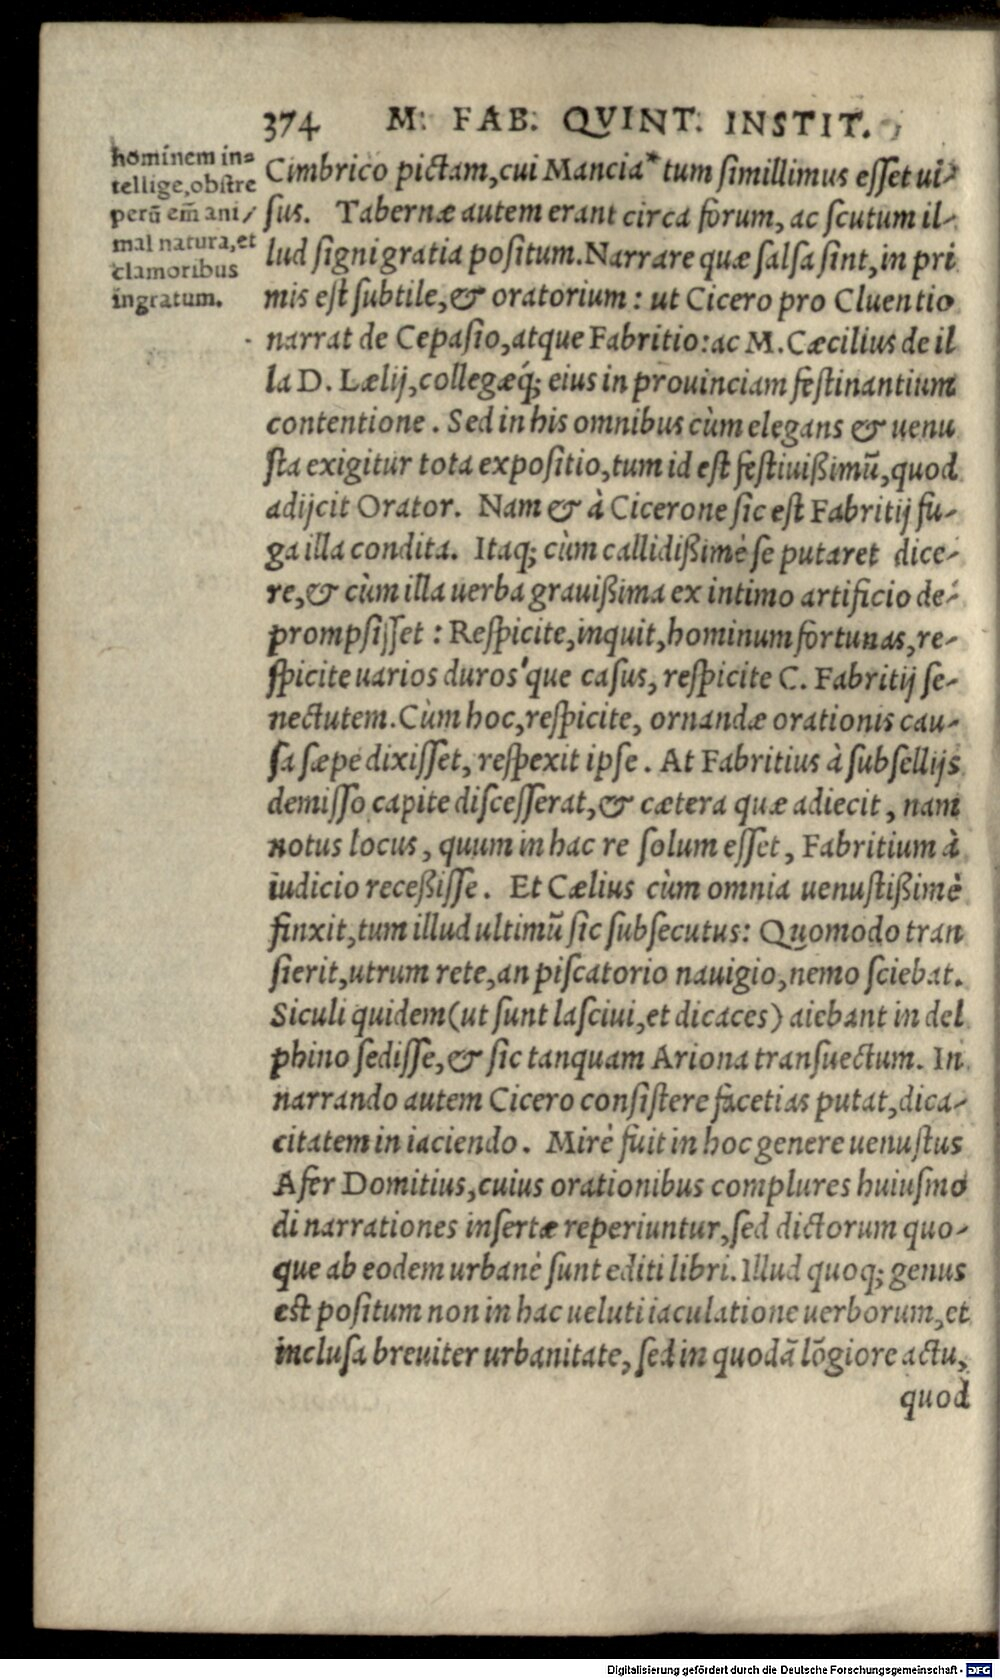 374 M. FAB. QVINT. INSTIT.
hominem in=
tellige, obstre
perũ em̃ ani/
mal natura, et
clamoribus
ingratum.
Cimbrico pictam, cui Mancia* tum simillimus esset ui-
sus. Tabernæ autem erant circa forum, ac scutum il-
lud signi gratia positum. Narrare quæ salsa sint, in pri
mis est subtile, & oratorium: ut Cicero pro Cluentio
narrat de Cepasio, atque Fabritio: ac M. Cæcilius de il
la D. Lælij, collegæq́; eius in prouinciam festinantium
contentione. Sed in his omnibus cùm elegans & uenu
sta exigitur tota expositio, tum id est festiuißimũ, quod
adijcit Orator. Nam & à Cicerone sic est Fabritij fu-
ga illa condita. Itaq; cùm callidißimè se putaret dice-
re, & cùm illa uerba grauißima ex intimo artificio de-
prompsisset: Respicite, inquit, hominum fortunas, re-
spicite uarios duros'que casus, respicite C. Fabritij se-
nectutem. Cùm hoc, respicite, ornandæ orationis cau-
sa sæpe dixisset, respexit ipse. At Fabritius à subsellijs
demisso capite discesserat, & cætera quæ adiecit, nam
notus locus, quum in hac re solum esset, Fabritium à
iudicio receßisse. Et Cælius cùm omnia uenustißimè
finxit, tum illud ultimũ sic subsecutus: Quomodo tran
sierit, utrum rete, an piscatorio nauigio, nemo sciebat.
Siculi quidem (ut sunt lasciui, et dicaces) aiebant in del
phino sedisse, & sic tanquam Ariona transuectum. In
narrando autem Cicero consistere facetias putat, dica-
citatem in iaciendo. Mirè fuit in hoc genere uenustus
Afer Domitius, cuius orationibus complures huiusmo
di narrationes insertæ reperiuntur, sed dictorum quo-
que ab eodem urbanè sunt editi libri. Illud quoq; genus
est positum non in hac ueluti iaculatione uerborum, et
inclusa breuiter urbanitate, sed in quodã lõgiore actu,
quod
Digitalisierung gefördert durch die Deutsche Forschungsgemeinschaft - DFG